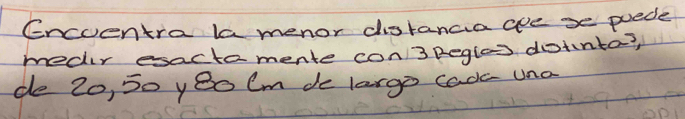 Encuentra la menor distancia que se puede
medir esactamente con 3 Reglas distintas,
de 20, 50 y 80 Cm de largo cada una